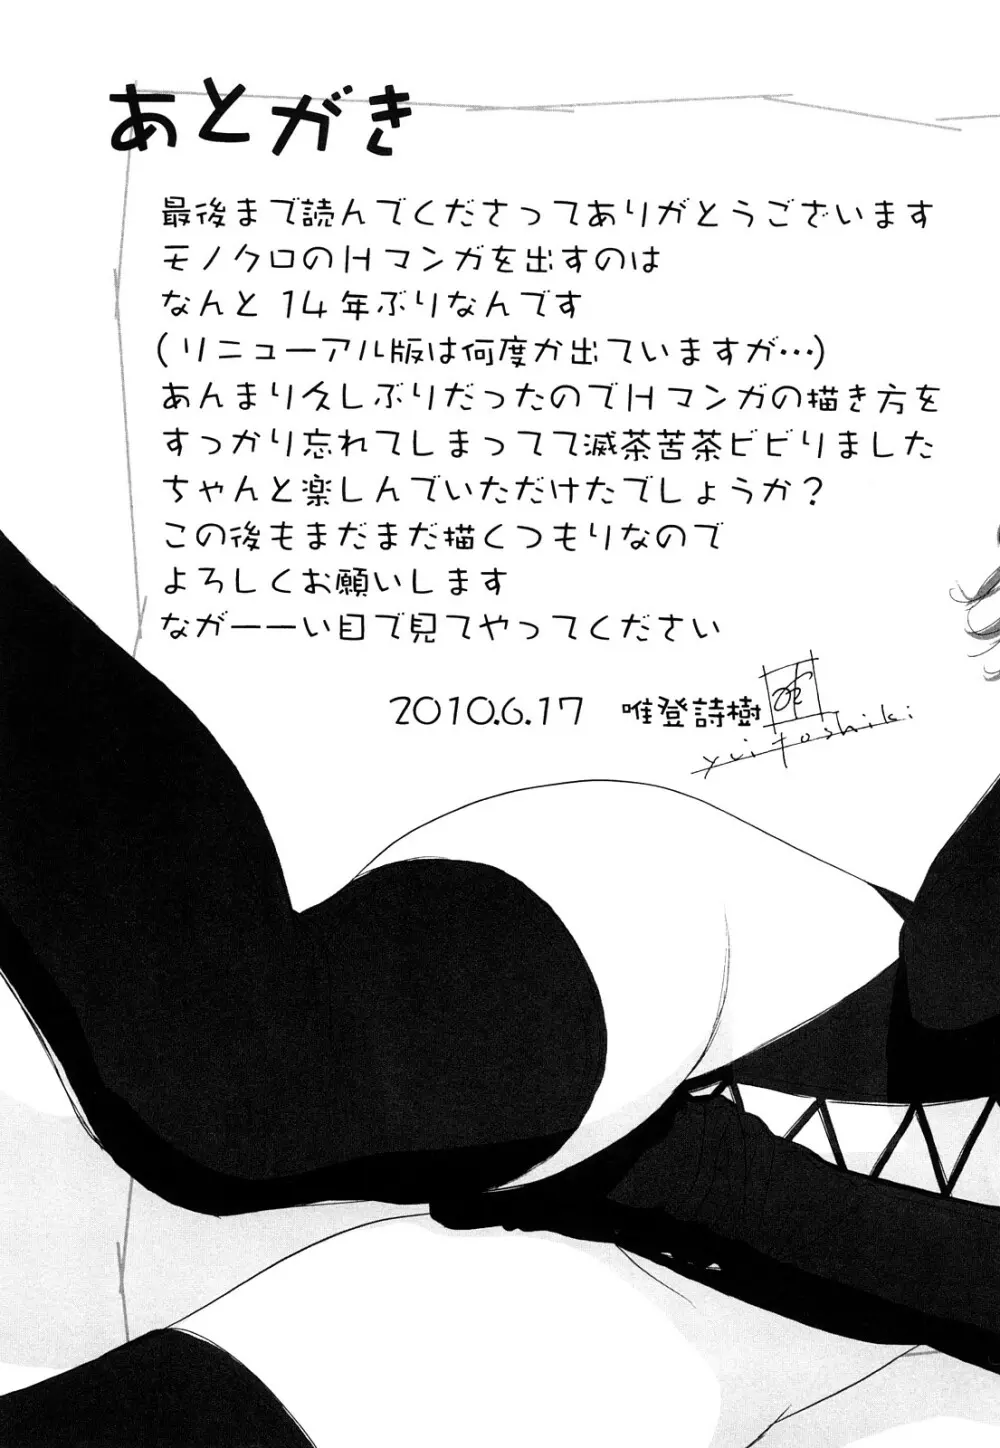 あとがき
最後まで読んでくださってありがとうございます
モノクロのHマンガを出すのは
なんと14年ぶりなんです
(リニューアル版は何度か出ていますが…)
あんまり久しぶりだったのでHマンガの描き方を
すっかり忘れてしまってて滅茶苦茶ビビりました
ちゃんと楽しんでいただけたでしょうか?
この後もまだまだ描くつもりなので
よろしくお願いします
ながーーい目で見てやってください
2010.6.17 唯登詩樹
yui toshiki